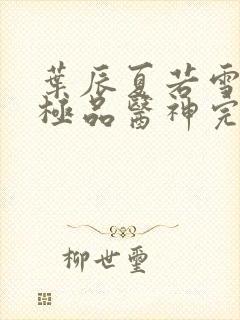 葉辰夏若雪
極品醫神完
柳世璽